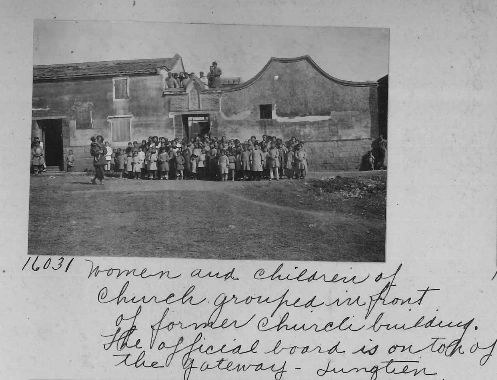 16031 Women and children of
church grouped in front
of former church building.
The official board is on top of
the gateway - Lungtien